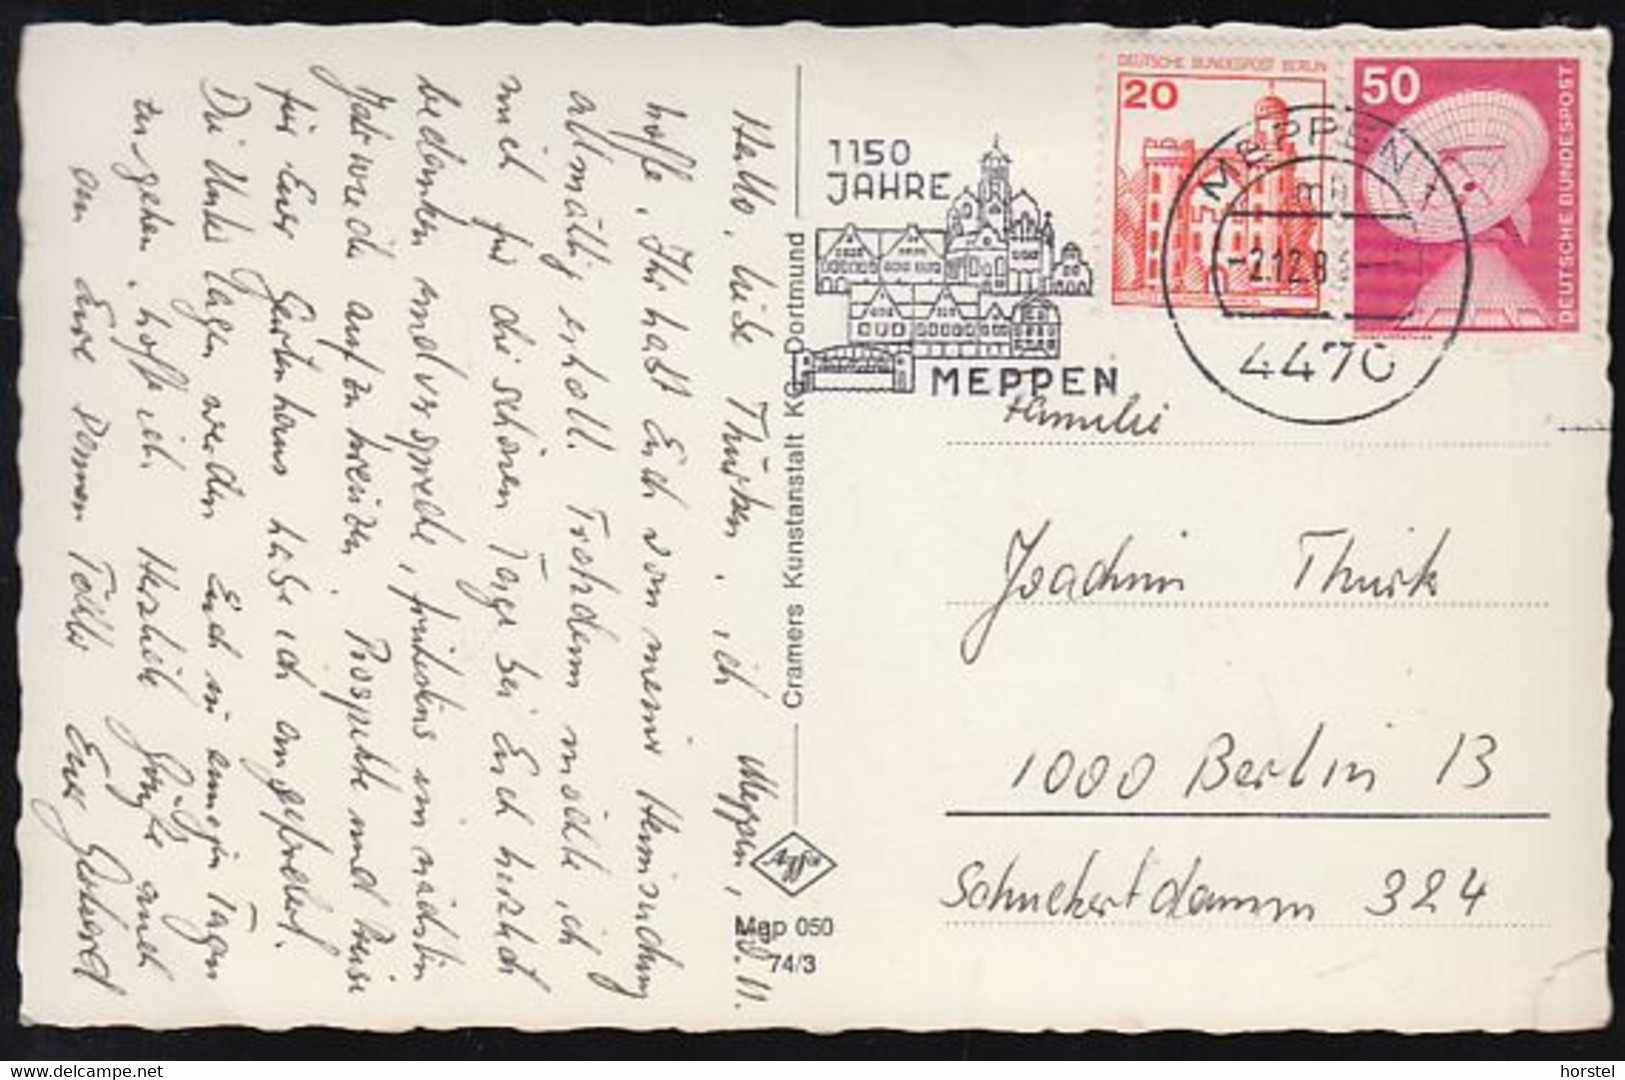 Hallo, liebe Thürken, ich Meppen, 30.11.
hoffe, Ihr habt Euch von meiner Heimsuchung
allmählig erholt. Trotzdem möchte ich
mich für die schönen Tage bei Euch herzlich
bedanken und verspreche, frühstens im nächsten
Jahr wieder aufzukreuzen. Prospekte und Preise
für Euer Gartenhaus habe ich angefordert.
Die Unterlagen werden Euch in einigen Tagen
zugehen, hoffe ich. Herzliche Grüße auch
an Eure Töchter Euer Gerhard
Cramers Kunstanstalt KG Dortmund
Mep 050
74/3
1150
JAHRE
MEPPEN
DEUTSCHE BUNDESPOST BERLIN
20
50
DEUTSCHE BUNDESPOST
MEPPEN 1
mb
-2.12.8
4470
Familie
Joachim Thürk
1000 Berlin 13
Schuckertdamm 324
www.delcampe.net
horstel